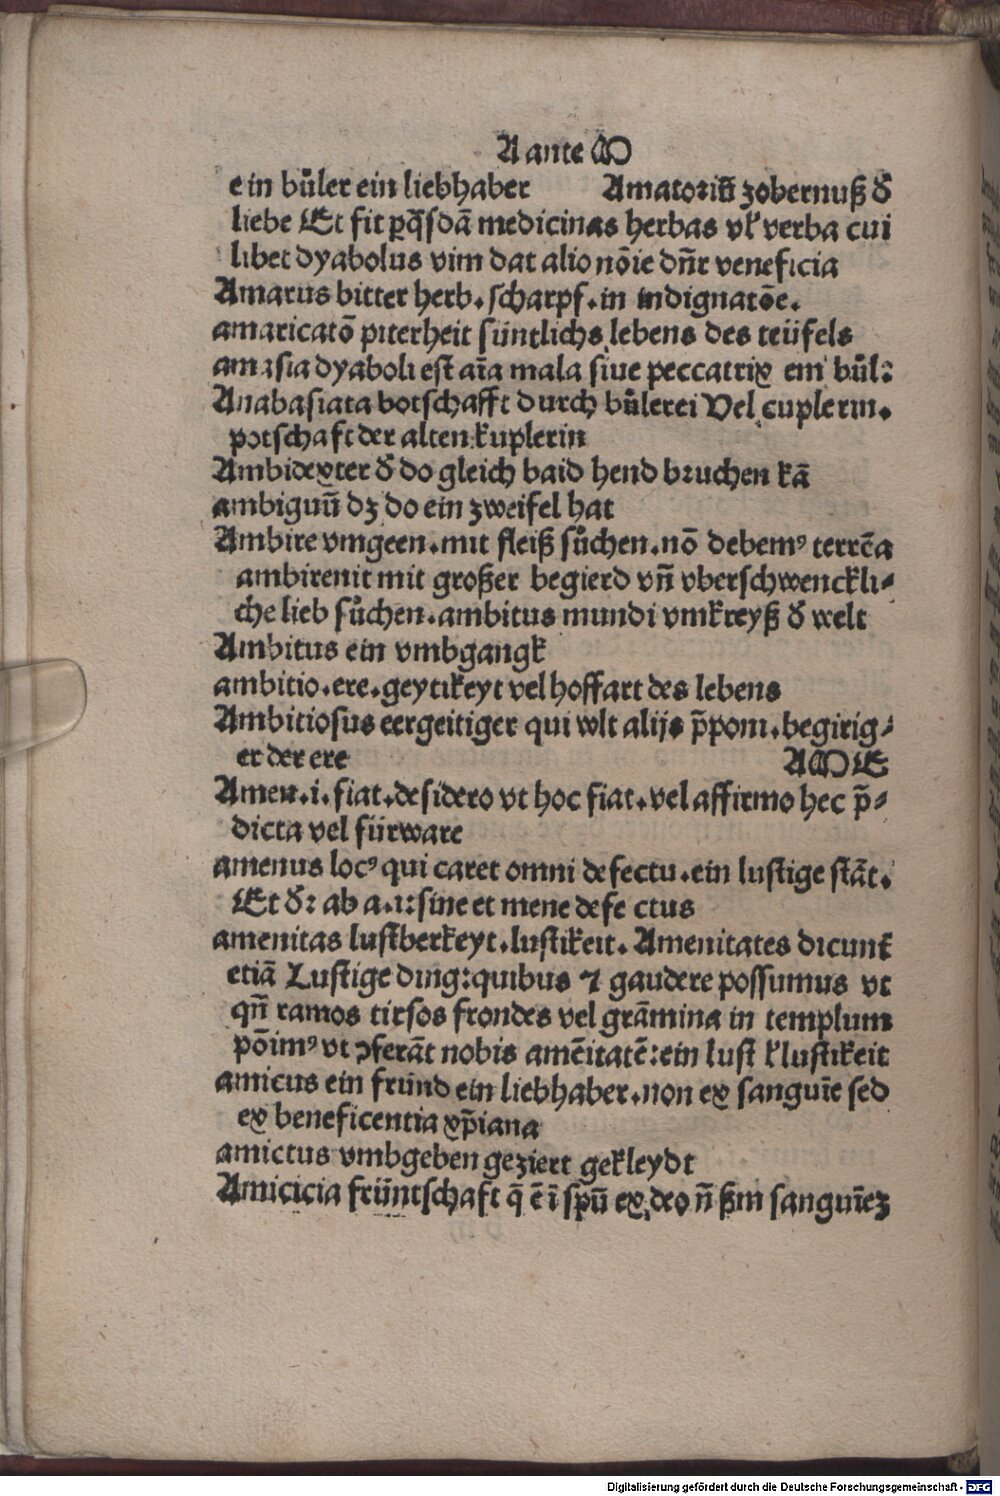 A ante M
ein bůler ein liebhaber Amatoriū zobernuß đ
liebe Et fit ꝑq̄sdā medicinas herbas vł verba cui
libet dyabolus vim dat alio nōie dn̄r veneficia
Amarus bitter herb. scharpf. in indignatōe.
amaricatō piterheit süntlichs lebens des teüfels
amasia dyaboli est aīa mala siue peccatrix ein bůl:
Anabasiata botschafft durch bůlerei Vel cuplerin.
potschaft der alten kuplerin
Ambidexter đ do gleich baid hend bruchen kā
ambiguū dz do ein zweifel hat
Ambire vmgeen. mit fleiß sůchen. nō debemꝰ terrēa
ambirenit mit großer begierd vn̄ vberschwenckli⸗
che lieb sůchen. ambitus mundi vmkreyß đ welt
Ambitus ein vmbgangk
ambitio. ere. geytikeyt vel hoffart des lebens
Ambitiosus eergeitiger qui wlt alijs p̄pom. begirig⸗
er der ere AME
Amen. i. fiat. desidero vt hoc fiat. vel affirmo hec p̄⸗
dicta vel fürware
amenus locꝰ qui caret omni defectu. ein lustige stāt.
Et đr ab a. i: sine et mene defectus
amenitas lustberkeyt. lustikeit. Amenitates dicunt
etiā Lustige ding: quibus ⁊ gaudere possumus vt
qn̄ ramos tirsos frondes vel grāmina in templum
pōimꝰ vt ↄferāt nobis amēitatē: ein lust k lustikeit
amicus ein fründ ein liebhaber. non ex sanguīe sed
ex beneficentia xp̄iana
amictus vmbgeben geziert gekleydt
Amicicia früntschaft q̄ ē ī spū ex deo n̄ ßm sanguīez
Digitalisierung gefördert durch die Deutsche Forschungsgemeinschaft - DFG